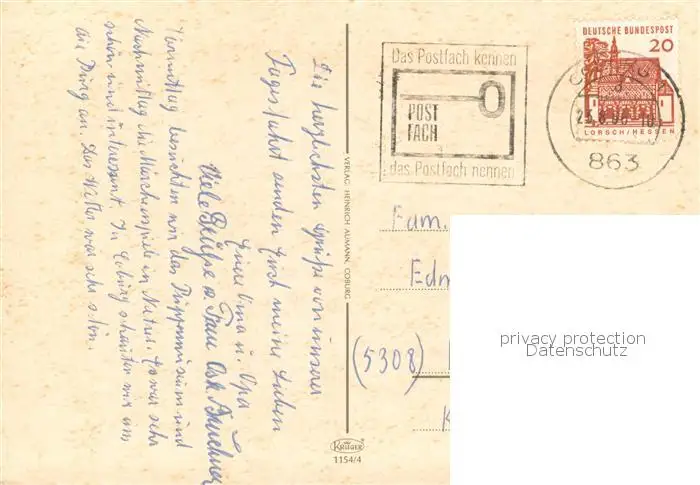 Die herzlichsten Grüße von unserer
Tagesfahrt senden Euch meine Lieben
Eure Oma u. Opa
Viele Grüße a. Frau Osk. Buchner
Vormittag besuchten wir das Puppenmuseum und
Nachmittag die Märchenspiele in Natur. Es war sehr
schön und interessant. In Coburg schauten wir uns
die Burg an. Das Wetter war sehr schön.
VERLAG HEINRICH AUMANN, COBURG
KRÜGER
1154/4
Das Postfach kennen
POST
FACH
das Postfach nennen
COBURG
863
DEUTSCHE BUNDESPOST
20
LORSCH/HESSEN
Fam.
Edm
(5308)
privacy protection
Datenschutz